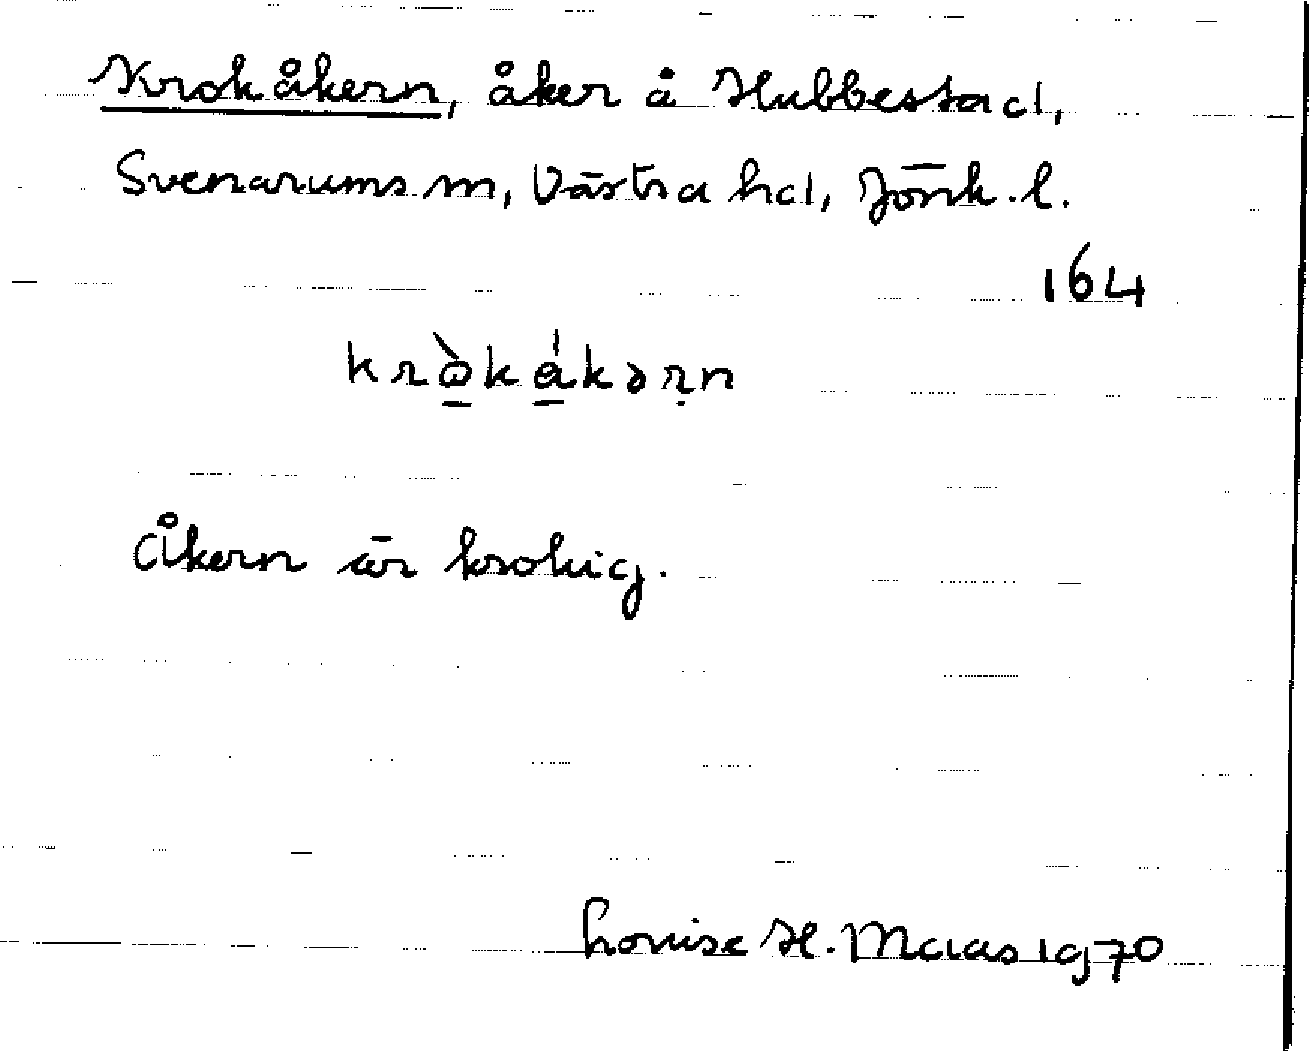 Krokåkern, åker å Hubbestad,
Svenarums sn, Västra hd, Jönk. l.
164
krɷ̀kákərn
Åkern är krokig.
Louise H. Maas 1970